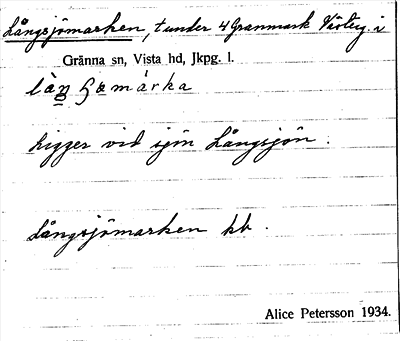 Långsjömarken, t under 4 Granmark Västeg. i
Gränna sn, Vista hd, Jkpg. l.
låŋʃømárka
ligger vid sjön Långsjön.
Långsjömarken kb.
Alice Petersson 1934.